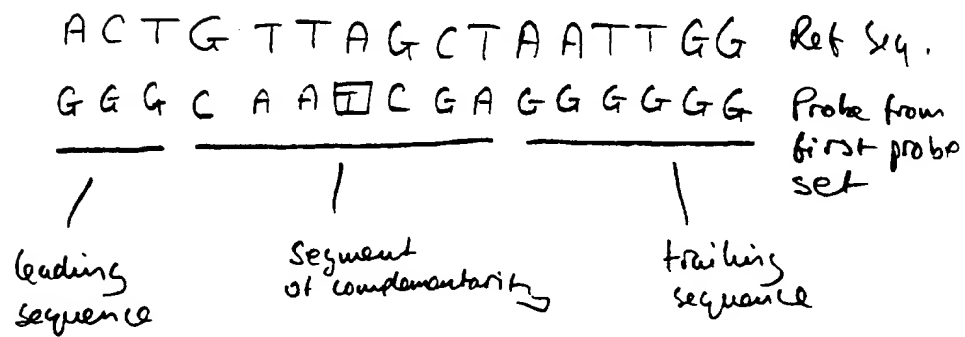 A C T G T T A G C T A A T T G G Ref seq.
G G G C A A T C G A G G G G G G Probe from
first probe
set
leading segment trailing
sequence of complementarity sequence